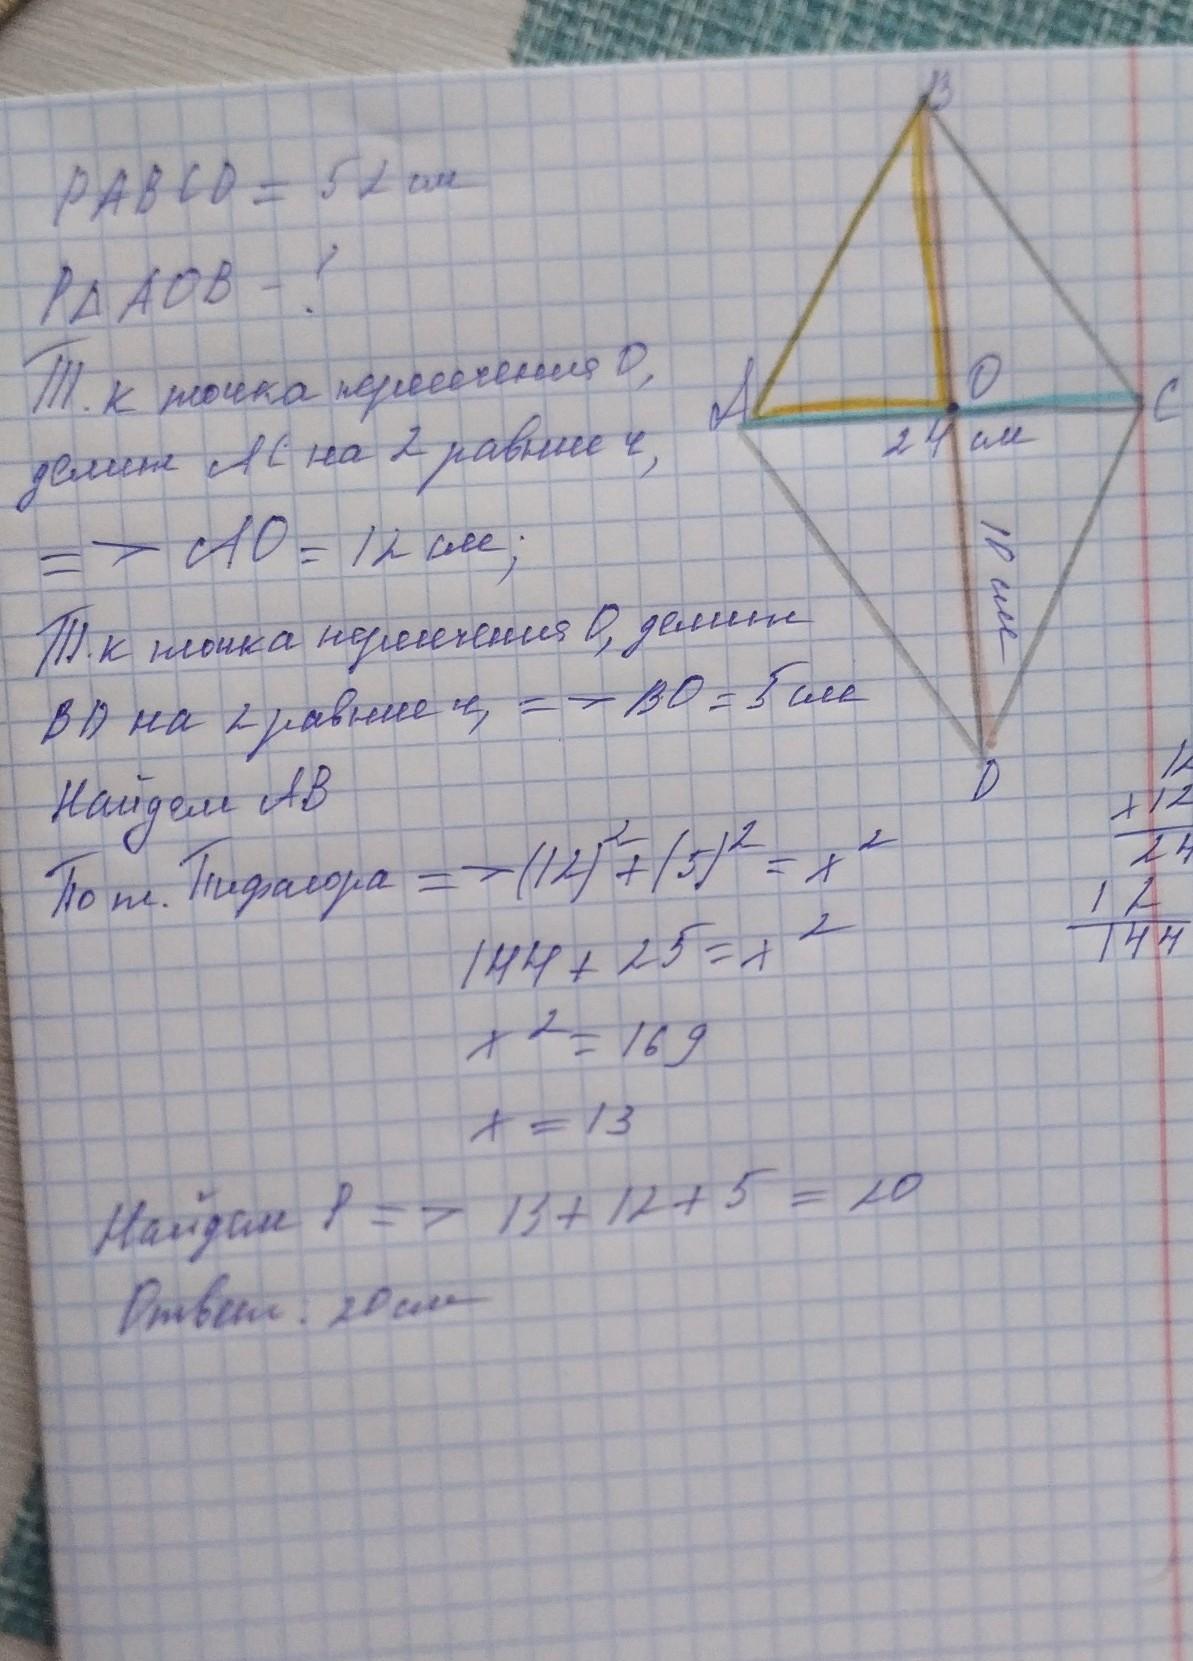 PABCD = 52 см
P∆ AOB - ?
Т.к точка пересечения O,
делит AC на 2 равные ч,
=> AO = 12 см;
Т.к точка пересечения O, делит
BD на 2 равные ч, => BO = 5 см
Найдем AB
По т. Пифагора => (12)² + (5)² = x²
144 + 25 = x²
x² = 169
x = 13
Найдем P => 13 + 12 + 5 = 20
Ответ: 20 см
B
A
O
C
24 см
10 см
D
12
x12
24
12
144